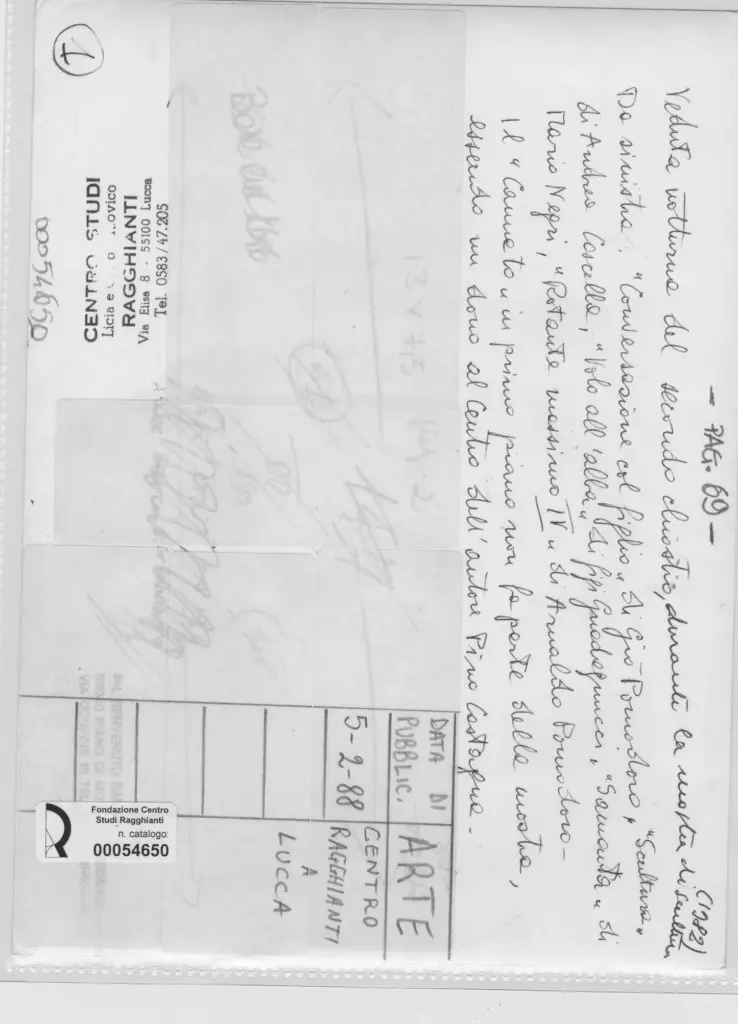 - PAG. 69 -
Veduta notturna del secondo chiostro, durante la mostra di Scultura (1982)
Da sinistra: "Conversazione col figlio" di Giò Pomodoro, "Scultura"
di Andrea Cascella, "Volo all'alba" di Gigi Guadagnucci, "Samanta" di
Mario Negri, "Rotante massimo IV" di Arnaldo Pomodoro -
Il "Canneto" in primo piano non fa parte della mostra,
essendo un dono al Centro dell'autore Pino Castagna -
1
CENTRO STUDI
Licia e
RAGGHIANTI
Via Elisa 8 - 55100 Lucca
Tel. 0583/47.205
00054650
DATA DI
PUBBLIC.
ARTE
5-2-88
CENTRO
RAGGHIANTI
A
LUCCA
Fondazione Centro
Studi Ragghianti
n. catalogo:
00054650